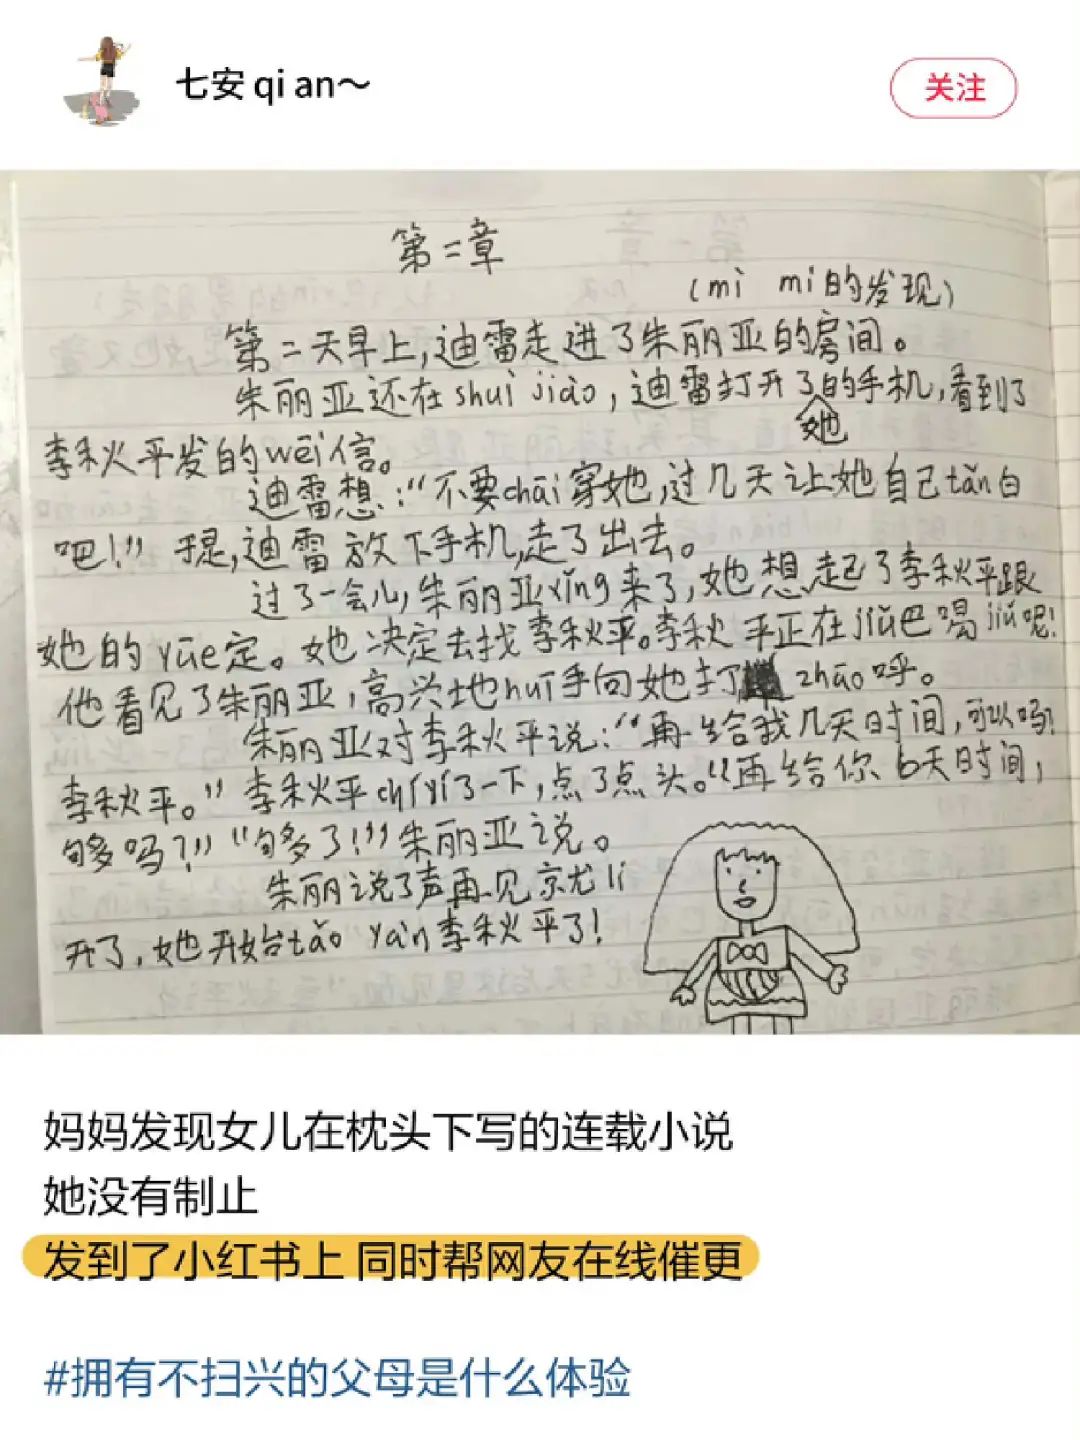 七安 qi an～
关注
第二章
(mì mì的发现)
第二天早上,迪雷走进了朱丽亚的房间。
朱丽亚还在shuì jiào,迪雷打开了的手机,看到了
她
李秋平发的wēi信。
迪雷想:“不要chāi穿她,过几天让她自己tǎn白
吧!” 于是,迪雷放下手机,走了出去。
过了一会儿,朱丽亚xǐng来了,她想起了李秋平跟
她的yuē定。她决定去找李秋平。李秋平正在jiǔ巴喝jiǔ呢!
他看见了朱丽亚,高兴地huī手向她打zhāo呼。
朱丽亚对李秋平说:“再给我几天时间,可以吗!
李秋平。”李秋平chíyí了一下,点了点头。“再给你6天时间,
够吗?!”“够了!”朱丽亚说。
朱丽说了声再见京尤lí
开了,她开始tǎo yàn李秋平了!
妈妈发现女儿在枕头下写的连载小说
她没有制止
发到了小红书上 同时帮网友在线催更
#拥有不扫兴的父母是什么体验